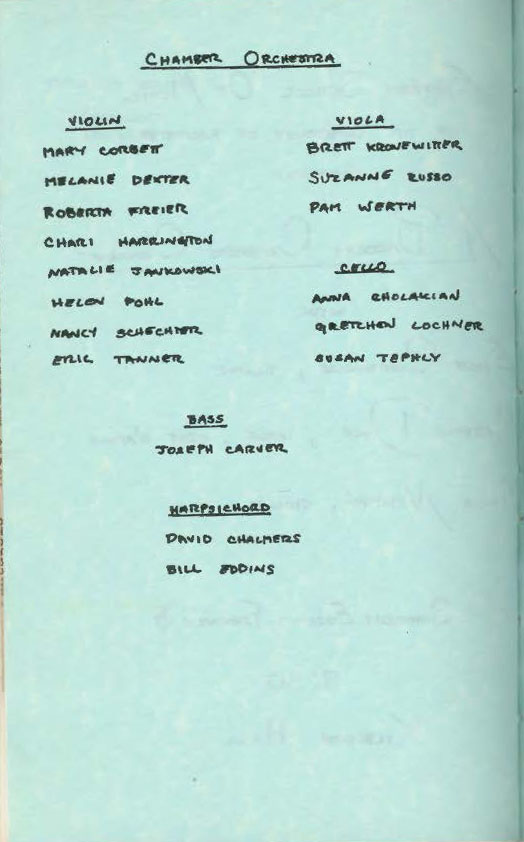 CHAMBER ORCHESTRA
VIOLIN
MARY CORBETT
MELANIE DEXTER
ROBERTA FREIER
CHARI HARRINGTON
NATALIE JANKOWSKI
HELEN POHL
NANCY SCHECHTER
ERIC TANNER
VIOLA
BRETT KRONEWITTER
SUZANNE RUSSO
PAM WERTH
CELLO
ANNA CHOLAKIAN
GRETCHEN LOCHNER
SUSAN TEPHLY
BASS
JOSEPH CARVER
HARPSICHORD
DAVID CHALMERS
BILL EDDINS